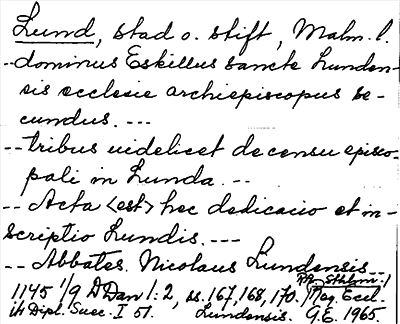 Lund, stad o. stift, Malm. l.
-- dominus Eskillus sancte Lunden-
sis ecclesie archiepiscopus se-
cundus. ---
-- tribus uidelicet de censu episco-
pali in Lunda. --
-- Acta <est> hec dedicacio et in-
scriptio Lundis. ---
-- Abbates. Nicolaus Lundensis --
1145 1/9 DDan 1:2, ss. 167, 168, 170. Reg. Eccl.
ih Dipl. Suec. I 51. Lundensis. G.E. 1965.